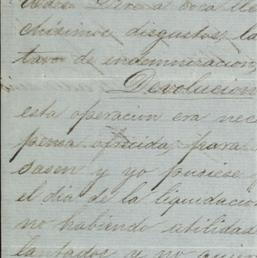 chisimos disgustos, la
tava de indemnizacion
Devolucion
esta operacion era nec
pena ofrecida, para
sasen y yo pudiese
el dia de la liquidacio
no habiendo utilidad
lantados y no quie